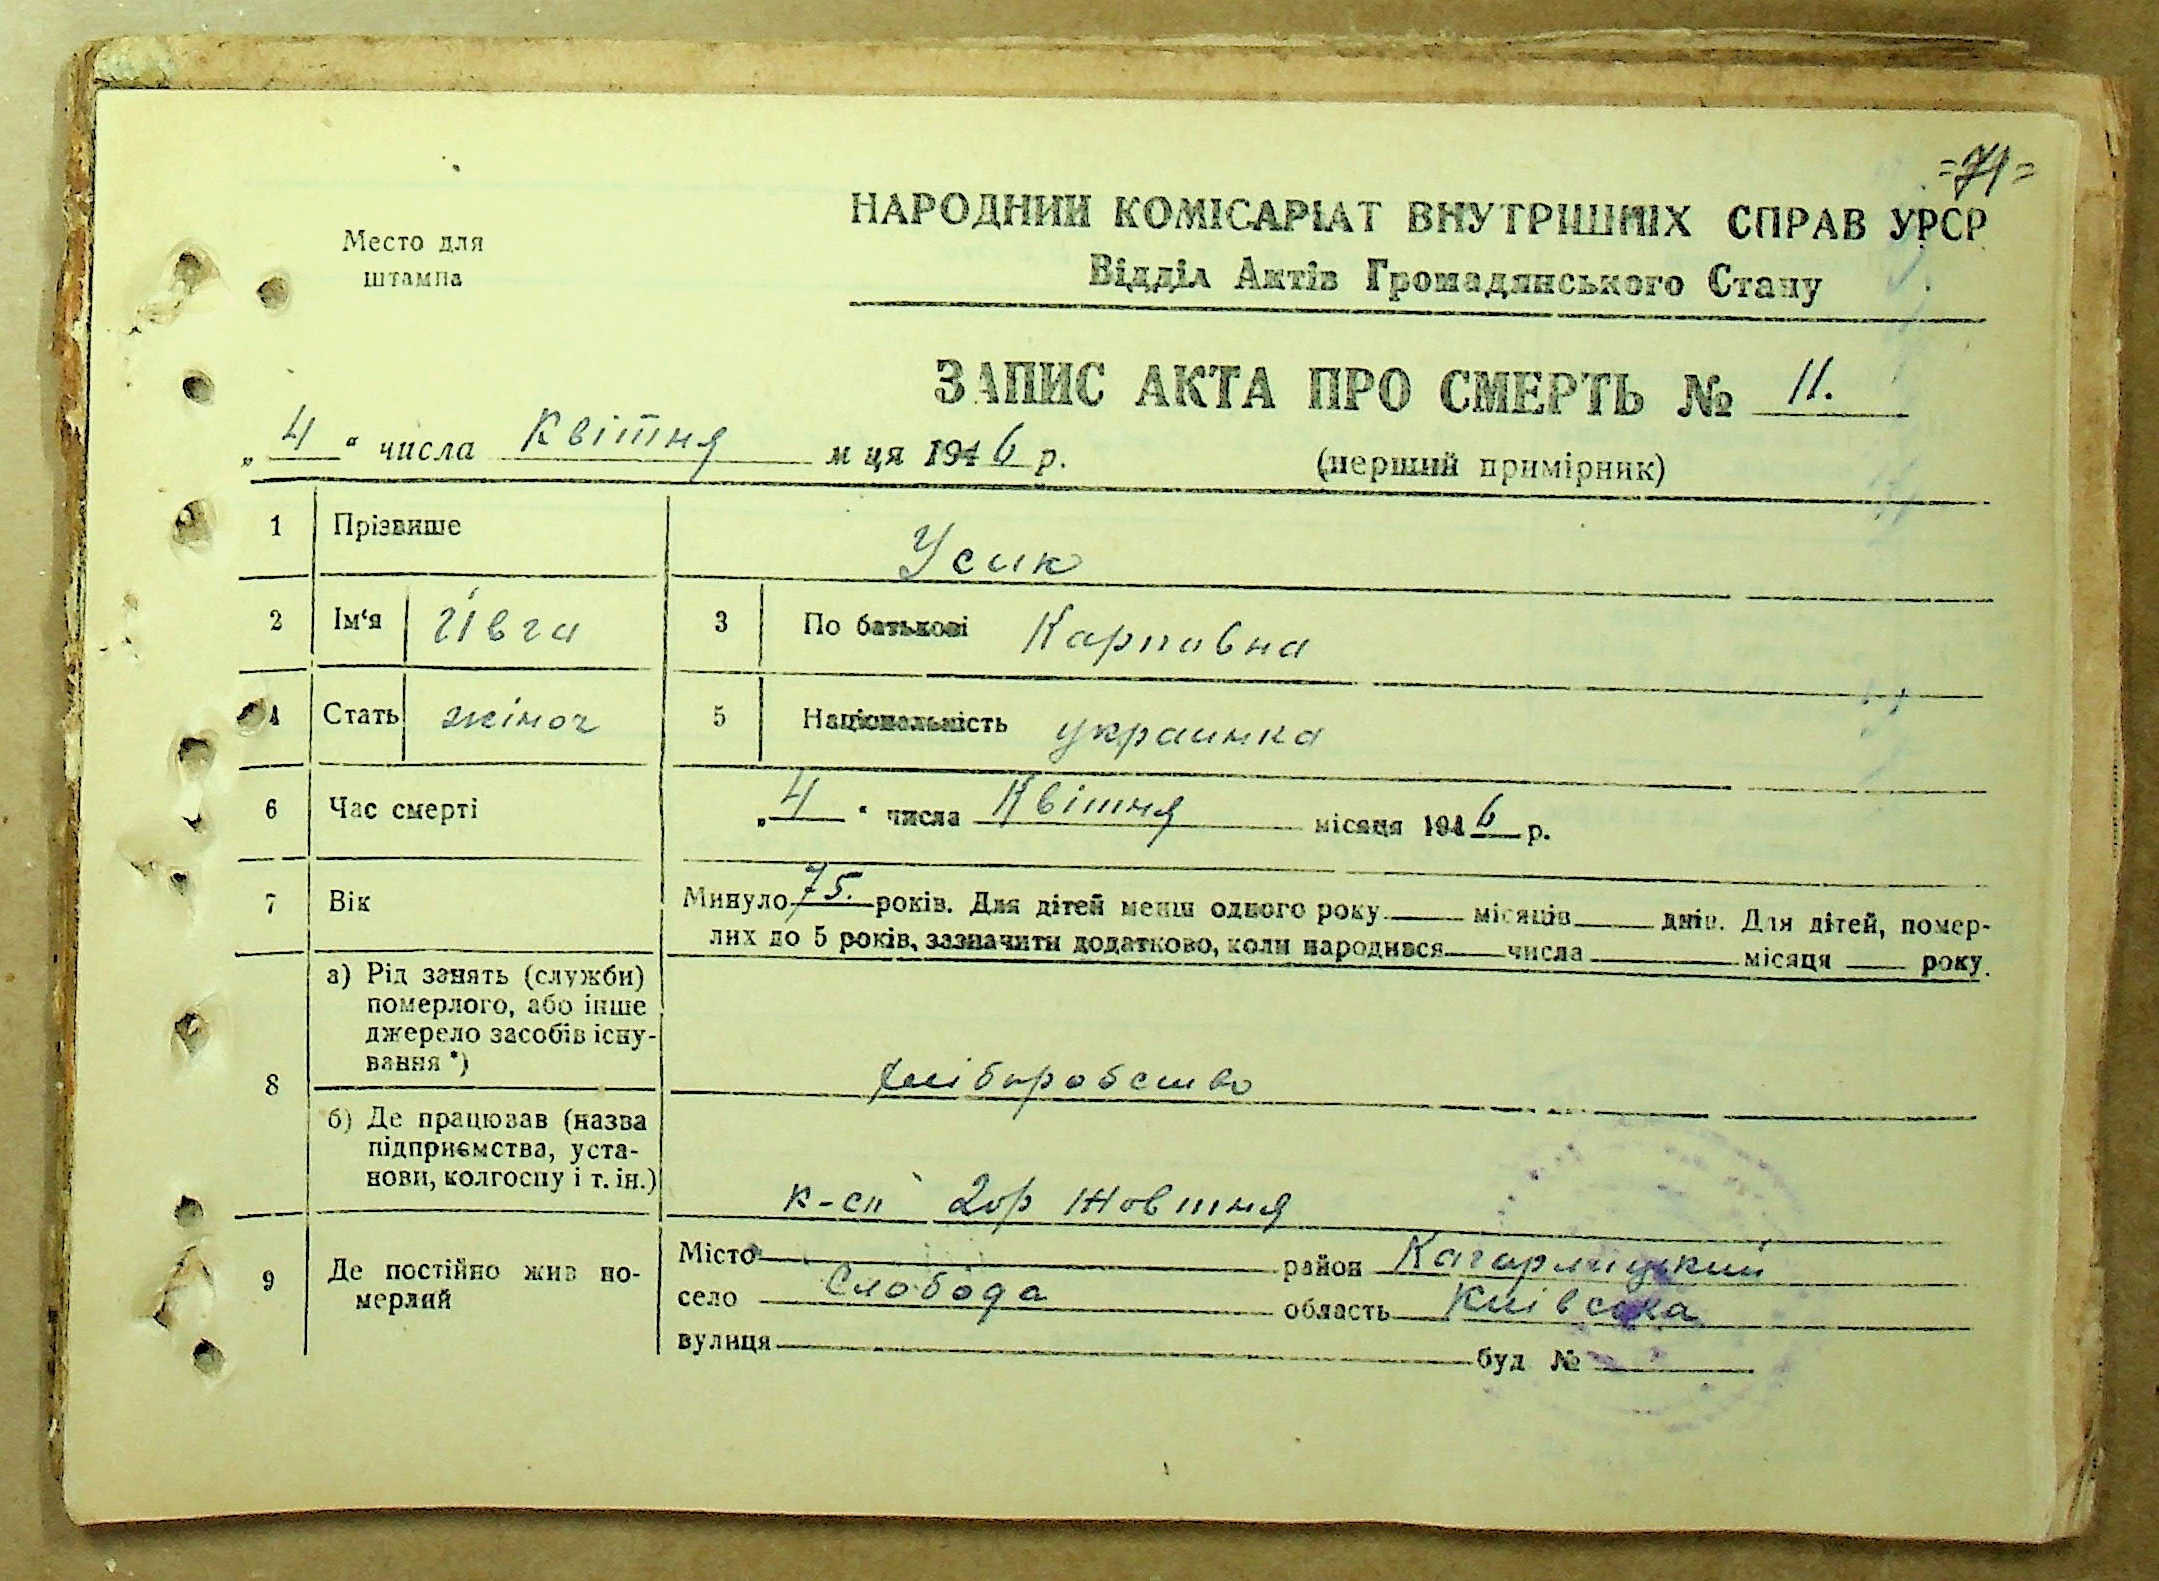 =71=
Место для
штампа
НАРОДНИЙ КОМІСАРІАТ ВНУТРІШНІХ СПРАВ УРСР
Відділ Актів Громадянського Стану
ЗАПИС АКТА ПРО СМЕРТЬ № 11.
„4“ числа Квітня м ця 1946 р.
(перший примірник)
1 Прізвише Усик
2 Ім‘я Ївга 3 По батькові Карповна
4 Стать жіноч 5 Національність украинка
6 Час смерті „4“ числа Квітня місяця 1946 р.
7 Вік Минуло 75. років. Для дітей менш одного року місяців днів. Для дітей, помер-
лих до 5 років, зазначити додатково, коли народився числа місяця року.
8 а) Рід занять (служби)
померлого, або інше
джерело засобів існу-
вання *)
хліборобство
б) Де працював (назва
підприємства, уста-
нови, колгоспу і т. ін.)
к-сп 2ор Жовтня
9 Де постійно жив по-
мерлий
Місто район Кагарлицкий
село Слобода область Київська
вулиця буд №